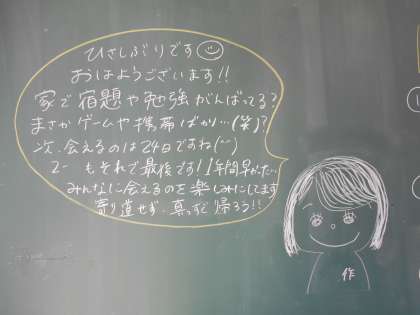 ひさしぶりです
おはようございます!!
家で宿題や勉強がんばってる?
まさかゲームや携帯ばかり…(笑)?
次、会えるのは24日ですね(ー)
2-  もそれで最後です!1年間早かった…
みんなに会えるのを楽しみにしてます
寄り道せず、真っすぐ帰ろう!!
作